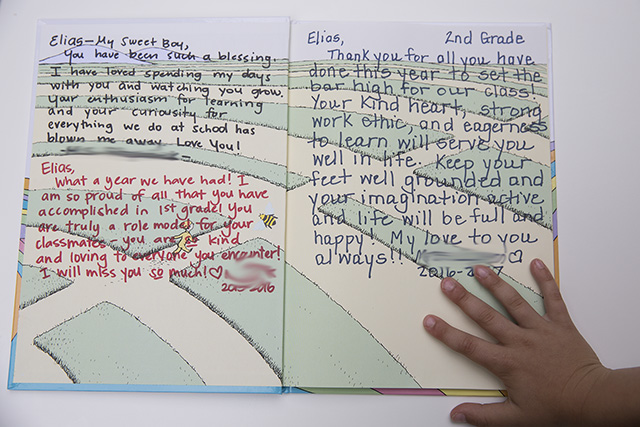 Elias—My Sweet Boy,
You have been such a blessing.
I have loved spending my days
with you and watching you grow.
Your enthusiasm for learning
and your curiousity for
everything we do at school has
blown me away. Love You!
Elias,
What a year we have had! I
am so proud of all that you have
accomplished in 1st grade! You
are truly a role model for your
classmates - you are so kind
and loving to everyone you encounter!
I will miss you so much! ♡
2015-2016
Elias, 2nd Grade
Thank you for all you have
done this year to set the
bar high for our class!
Your kind heart, strong
work ethic, and eagerness
to learn will serve you
well in life. Keep your
feet well grounded and
your imagination active
and life will be full and
happy! My love to you
always!! ♡